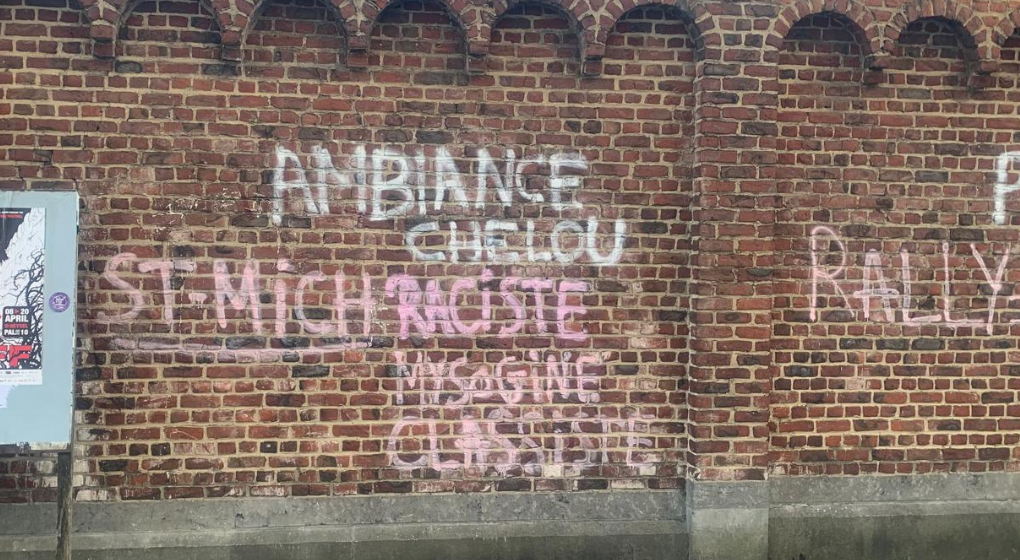 AMBIANCE
CHELOU
ST-MICH RACISTE
MYSOGINE
CLASSISTE
RALLY
P
08 > 20
APRIL
PALAIS 10